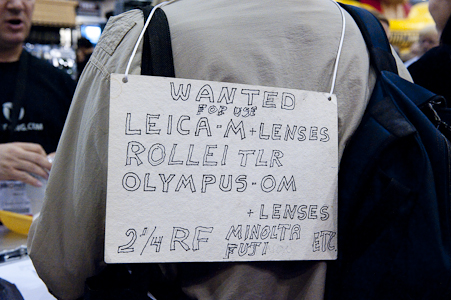 WANTED
FOR USE
LEICA-M+LENSES
ROLLEI TLR
OLYMPUS-OM
+ LENSES
2¼ RF MINOLTA FUJI ETC.